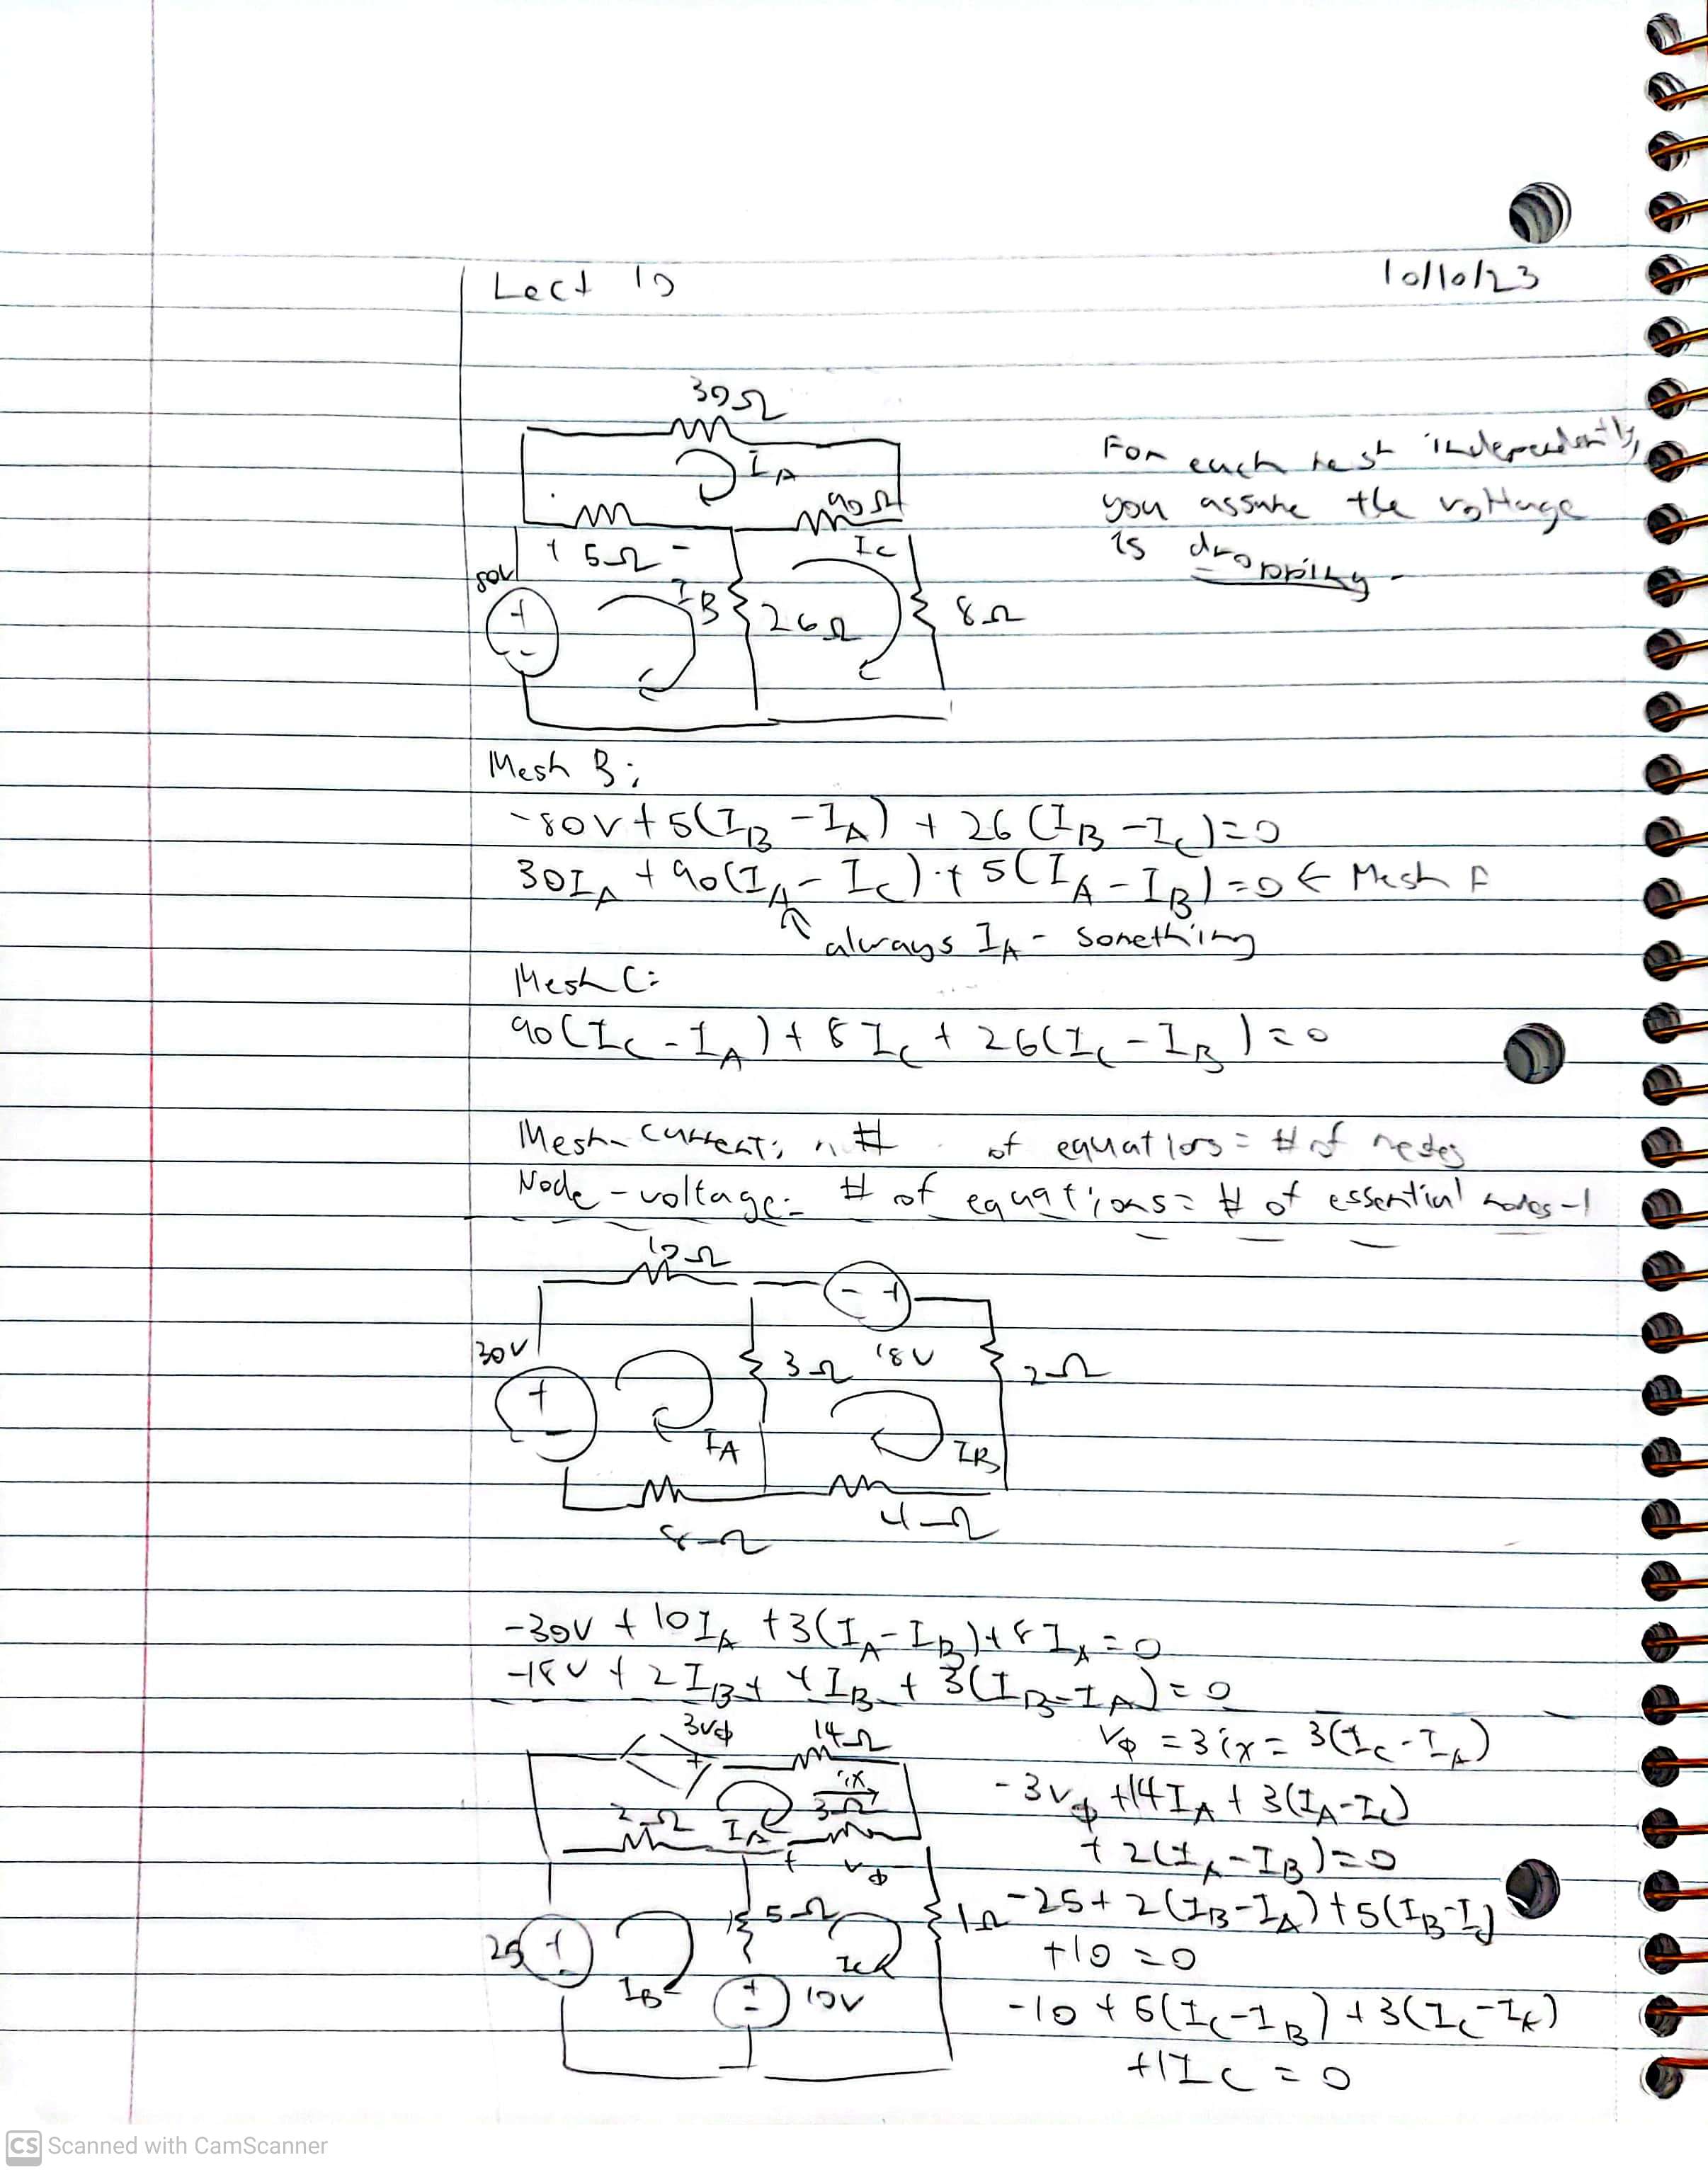 Lect 10
10/10/23
30Ω
I_A
90Ω
+ 5Ω -
I_C
80V
+
-
I_B
26Ω
8Ω
For each mesh independently,
you assume the voltage
is dropping.
Mesh B:
-80V + 5(I_B - I_A) + 26(I_B - I_C) = 0
30I_A + 90(I_A - I_C) + 5(I_A - I_B) = 0 ← Mesh A
always I_A - something
Mesh C:
90(I_C - I_A) + 8I_C + 26(I_C - I_B) = 0
Mesh-current: # of equations = # of
Node-voltage: # of equations = # of essential nodes-1
10Ω
- +
30V
3Ω
18V
2Ω
+
-
I_A
I_B
8Ω
4Ω
-30V + 10I_A + 3(I_A - I_B) + 8I_A = 0
-18V + 2I_B + 4I_B + 3(I_B - I_A) = 0
3vϕ
14Ω
- +
2Ω
I_A
ix
3Ω
+ vϕ
25
+
-
I_B
5Ω
I_C
1Ω
+
-
10V
vϕ = 3ix = 3(I_C - I_A)
-3vϕ + 14I_A + 3(I_A - I_C)
+ 2(I_A - I_B) = 0
-25 + 2(I_B - I_A) + 5(I_B - I_C)
+10 = 0
-10 + 5(I_C - I_B) + 3(I_C - I_A)
+1I_C = 0
CS Scanned with CamScanner